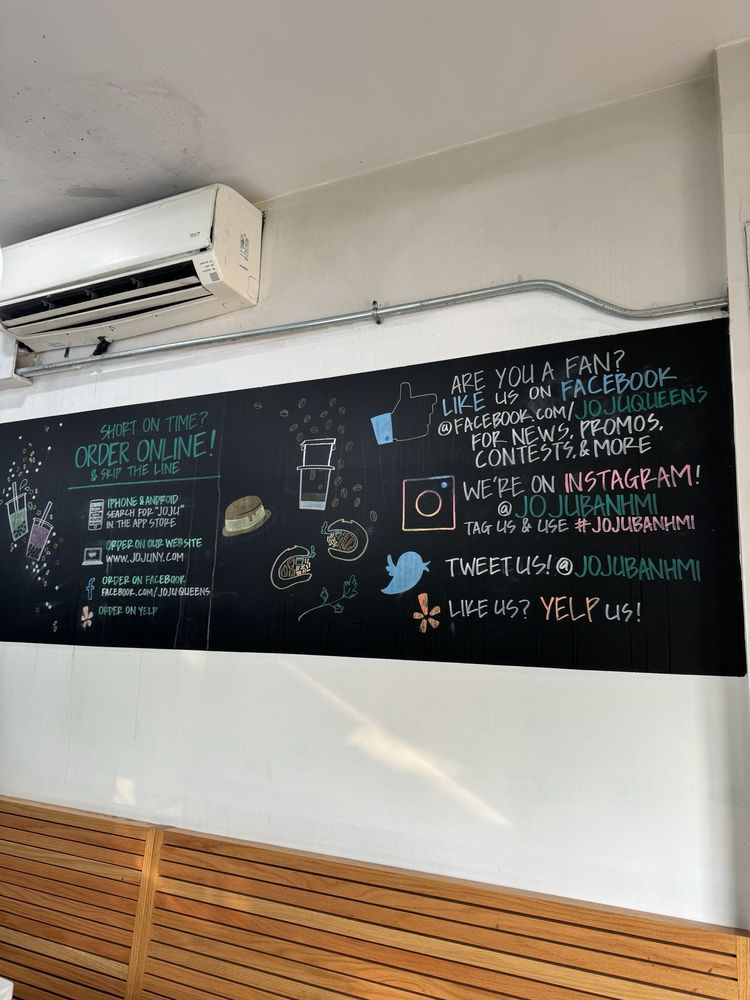 SHORT ON TIME?
ORDER ONLINE!
& SKIP THE LINE
IPHONE & ANDROID
SEARCH FOR "JOJU"
IN THE APP STORE
ORDER ON OUR WEBSITE
WWW.JOJUNY.COM
f
ORDER ON FACEBOOK
FACEBOOK.COM/JOJUQUEENS
ORDER ON YELP
ARE YOU A FAN?
LIKE US ON FACEBOOK
@FACEBOOK.COM/JOJUQUEENS
FOR NEWS, PROMOS,
CONTESTS, & MORE
WE'RE ON INSTAGRAM!
@JOJUBANHMI
TAG US & USE #JOJUBANHMI
TWEET US! @JOJUBANHMI
LIKE US? YELP US!